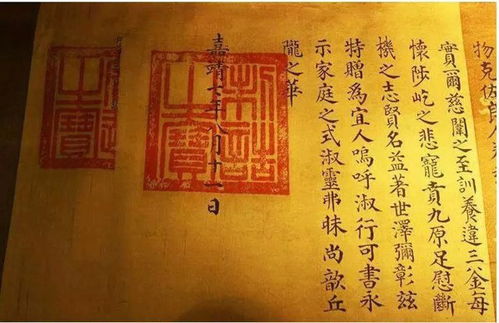 物克佐
實爾慈闈之至訓養違三釜每
懷陟屺之悲寵賁九原足慰斷
機之志賢名益著世澤彌彰茲
特贈為宜人嗚呼淑行可書永
示家庭之式淑靈弗昧尚歆丘
隴之華
嘉靖七年八月十一日
制誥之寶
之寶